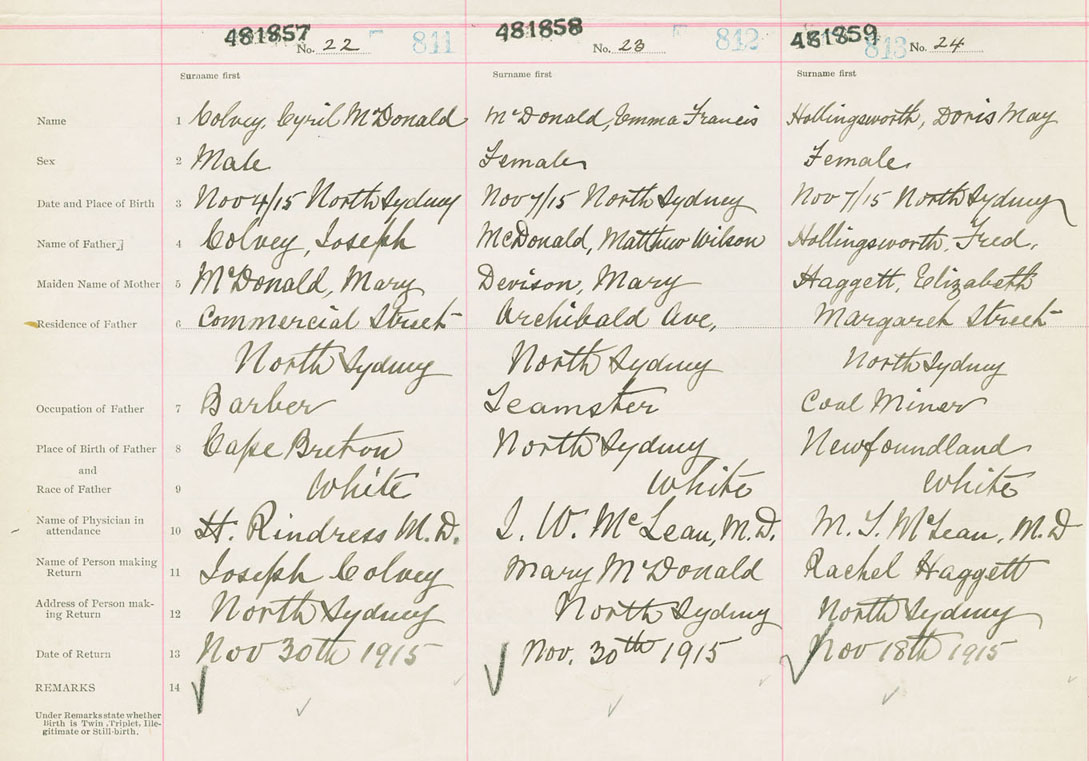 481857 No. 22 811 481858 No. 23 812 481859 813 No. 24
Surname first Surname first Surname first
Name 1 Colvey, Cyril McDonald McDonald, Emma Francis Hollingsworth, Doris May
Sex 2 Male Female Female
Date and Place of Birth 3 Nov 4/15 North Sydney Nov 7/15 North Sydney Nov 7/15 North Sydney
Name of Father 4 Colvey, Joseph McDonald, Matthew Wilson Hollingsworth, Fred,
Maiden Name of Mother 5 McDonald, Mary Devison, Mary Haggett, Elizabeth
Residence of Father 6 Commercial Street Archibald Ave, Margaret Street
North Sydney North Sydney North Sydney
Occupation of Father 7 Barber Teamster Coal Miner
Place of Birth of Father 8 Cape Breton North Sydney Newfoundland
and
Race of Father 9 White White White
Name of Physician in
attendance 10 H. Rindress M.D. J. W. McLean, M.D. M. T. McLean, M.D
Name of Person making
Return 11 Joseph Colvey Mary McDonald Rachel Haggett
Address of Person mak-
ing Return 12 North Sydney North Sydney North Sydney
Date of Return 13 Nov 30th 1915 Nov. 30th 1915 Nov 18th 1915
REMARKS 14
Under Remarks state whether
Birth is Twin, Triplet, Ille-
gitimate or Still-birth.